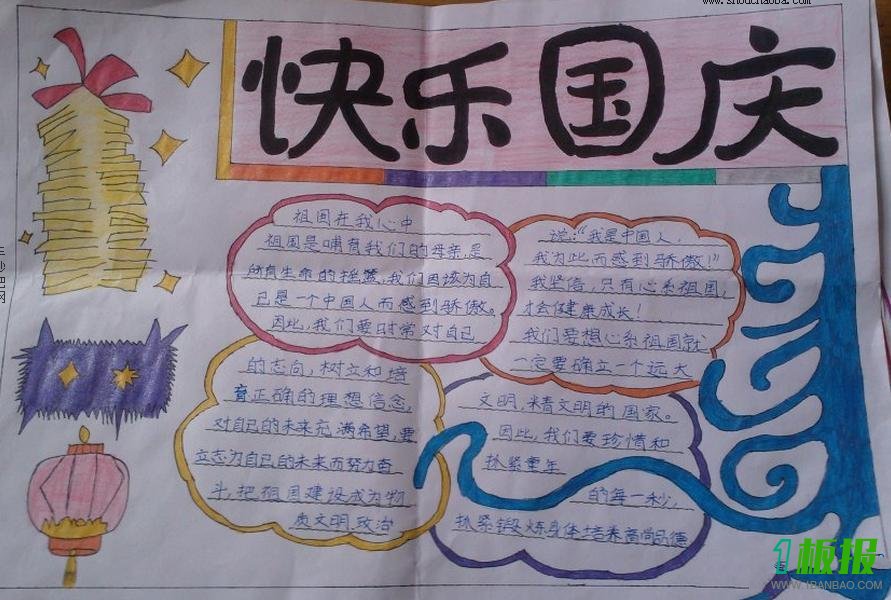 www.shouchaoba.com
快乐国庆
祖国在我心中
祖国是哺育我们的母亲,是
所有生命的摇篮,我们因该为自
己是一个中国人而感到骄傲。
因此,我们要时常对自己
说:“我是中国人,
我为此而感到骄傲!”
我坚信,只有心系祖国,
才会健康成长!
我们要想心系祖国就
一定要确立一个远大
的志向,树立和培
育正确的理想信念,
对自己的未来充满希望,要
立志为自己的未来而努力奋
斗,把祖国建设成为物
质文明,政治
文明,精文明的国家。
因此,我们要珍惜和
抓紧童年
的每一秒,
抓紧锻炼身体培养高尚品德
1板报
WWW.1BANBAO.COM